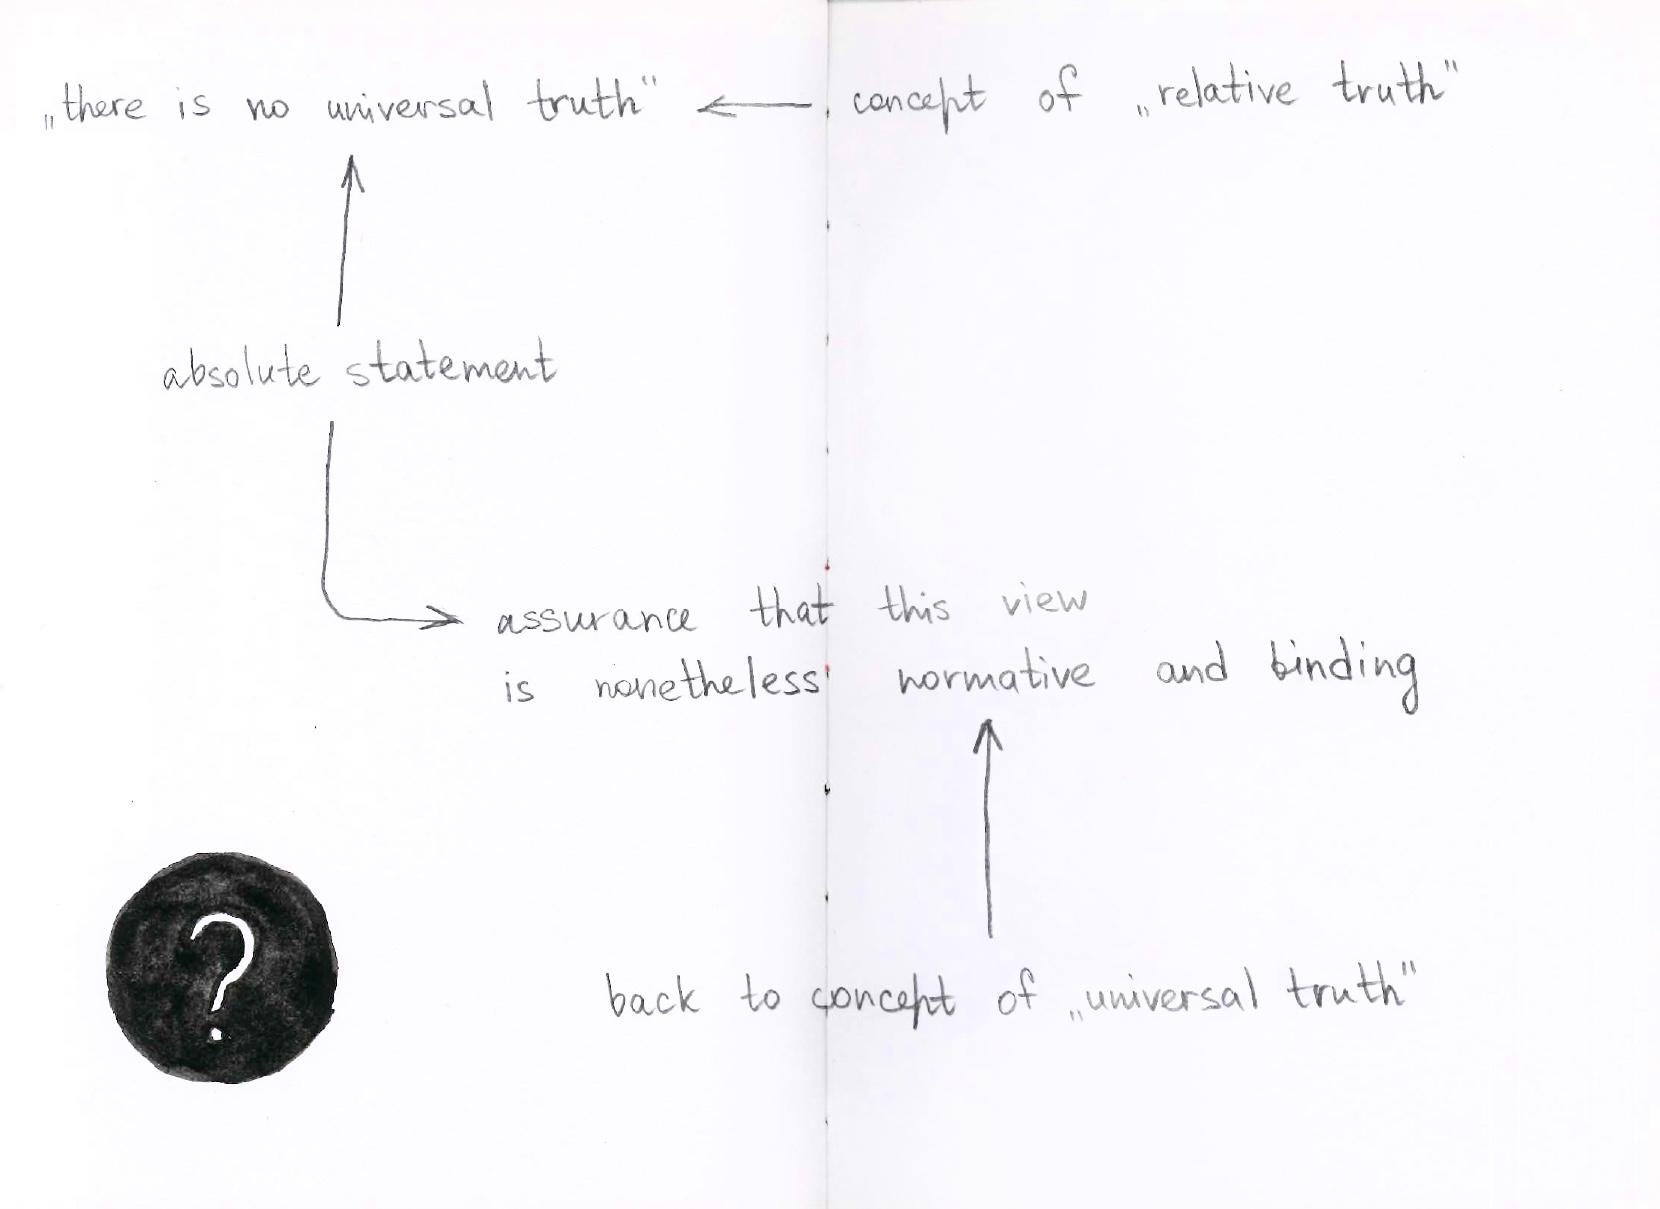 „there is no universal truth"
concept of „relative truth"
absolute statement
assurance that this view
is nonetheless normative and binding
?
back to concept of „universal truth"